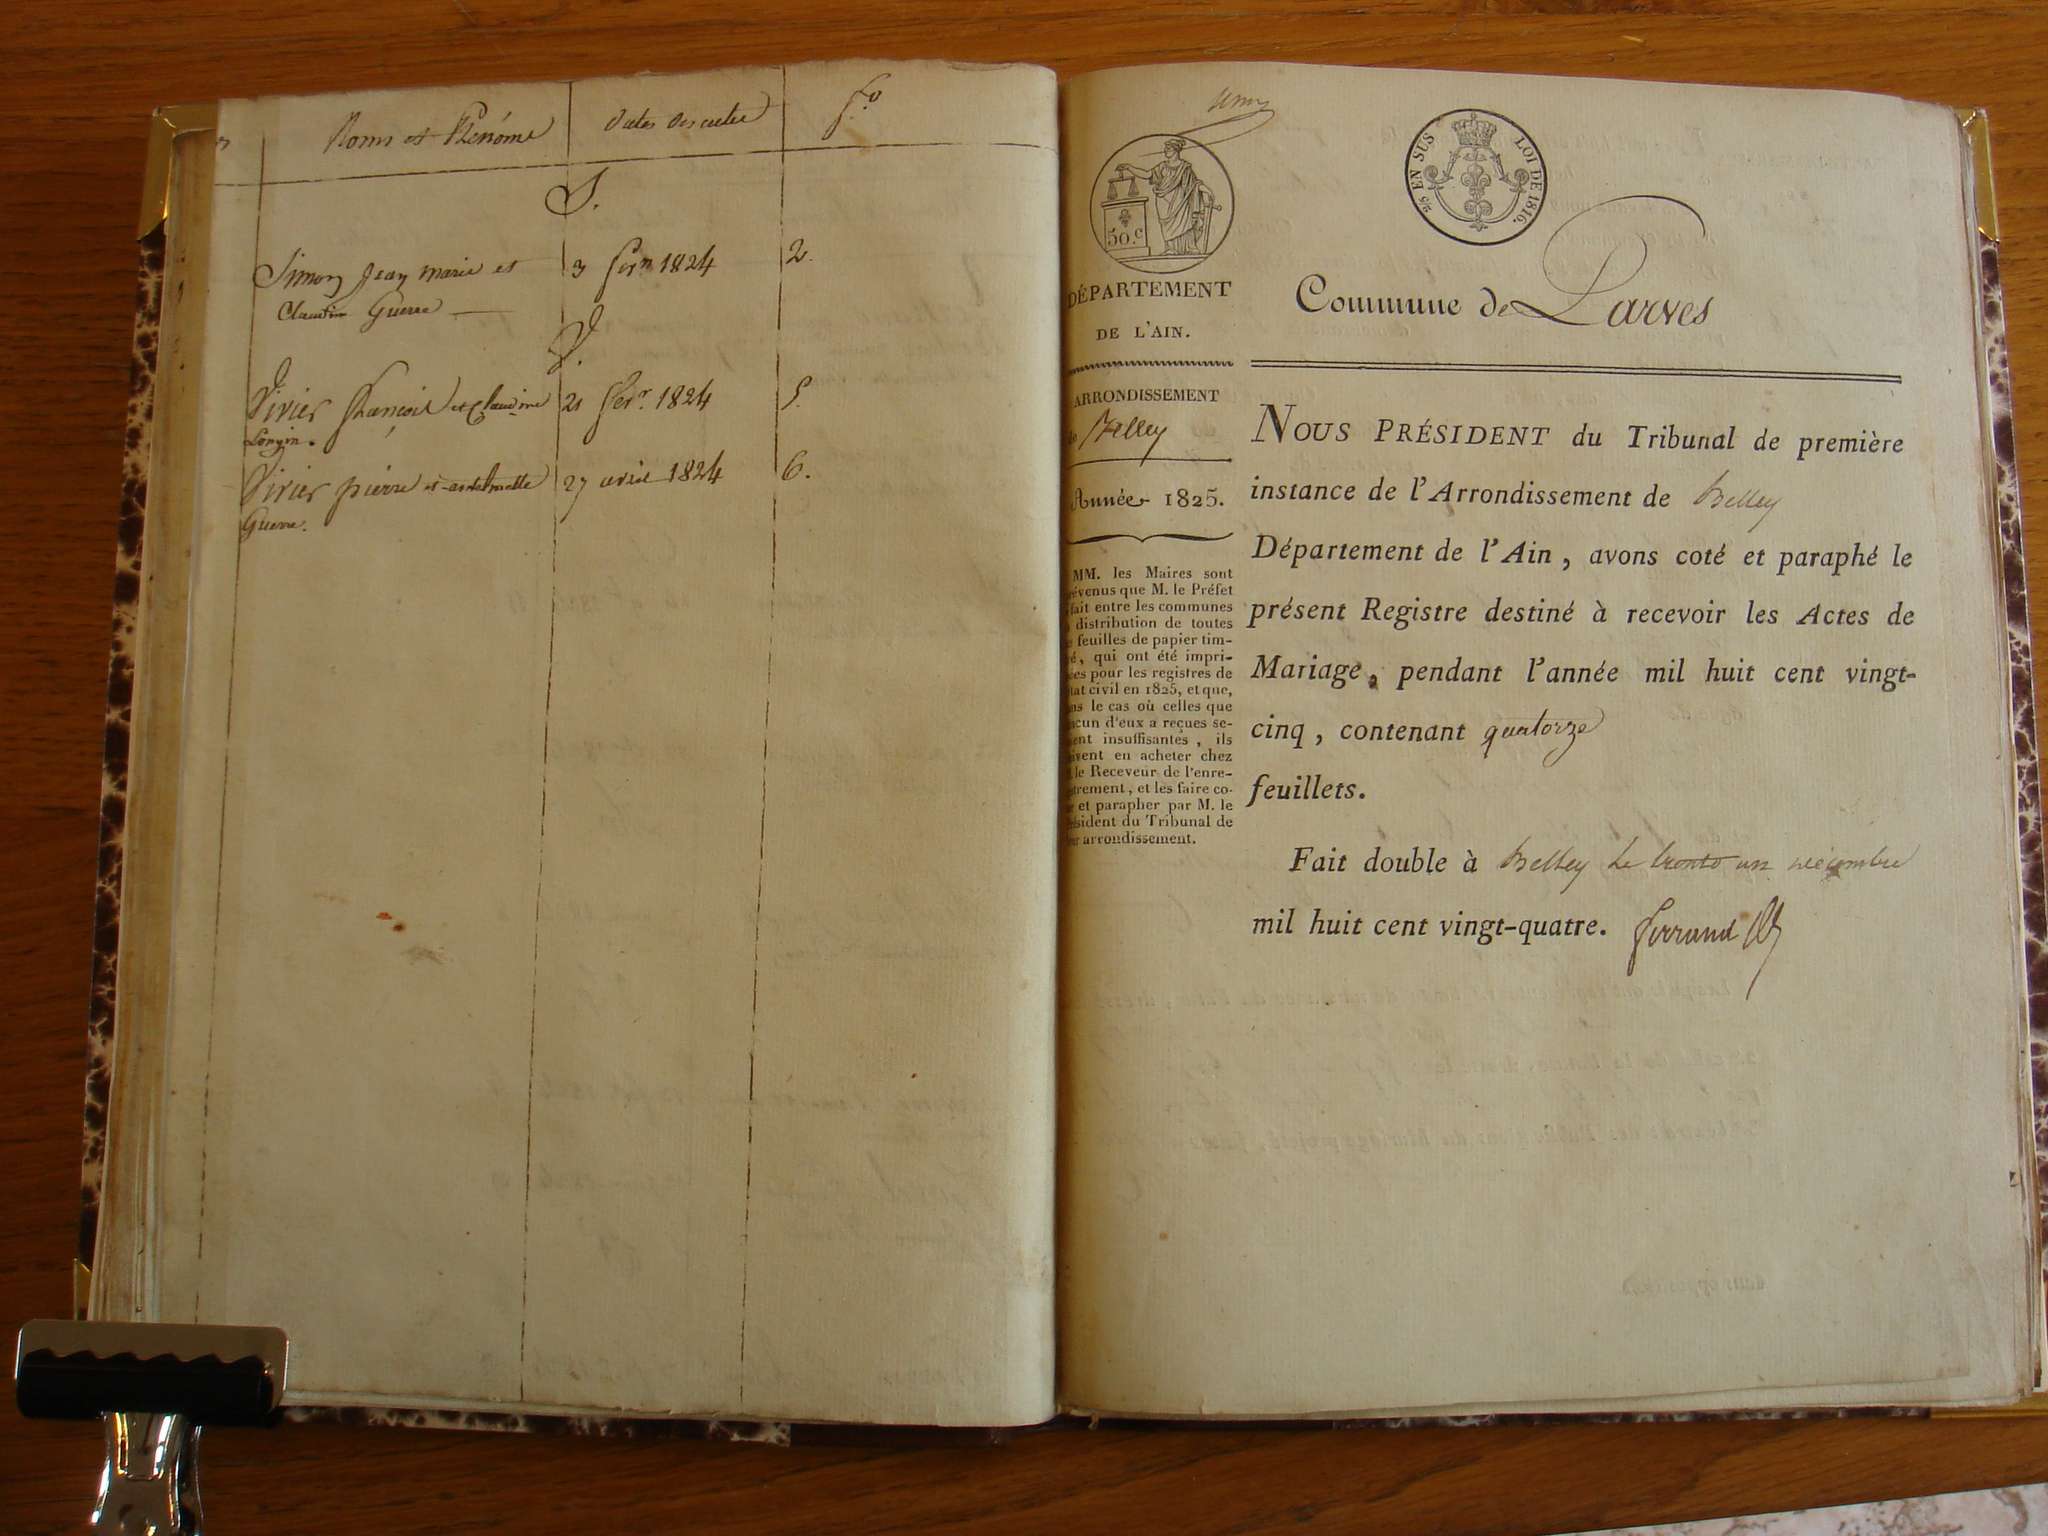 Noms et Prénoms
Dates des actes
fo.
S.
Simon Jean Marie et
3 fevr. 1824
2.
Claudine Guerre
V.
Vivier françois et Claudine
21 fevr. 1824
5.
Longin.
Vivier pierre et anthelmette
27 avril 1824
6.
Guerre.
50.c
2/5 EN SUS LOI DE 1816.
DÉPARTEMENT
DE L'AIN.
ARRONDISSEMENT
de Belley
Année 1825.
MM. les Maires sont
évenus que M. le Préfet
fait entre les communes
distribution de toutes
feuilles de papier tim-
é, qui ont été impri-
ées pour les registres de
tat civil en 1825, et que,
ns le cas où celles que
acun d'eux a reçues se-
ent insuffisantes, ils
ivent en acheter chez
le Receveur de l'enre-
trement, et les faire co-
et parapher par M. le
ésident du Tribunal de
ur arrondissement.
Commune de Parves
NOUS PRÉSIDENT du Tribunal de première
instance de l'Arrondissement de Belley
Département de l'Ain, avons coté et paraphé le
présent Registre destiné à recevoir les Actes de
Mariage, pendant l'année mil huit cent vingt-
cinq, contenant quatorze
feuillets.
Fait double à Belley le trente un décembre
mil huit cent vingt-quatre. ferrand